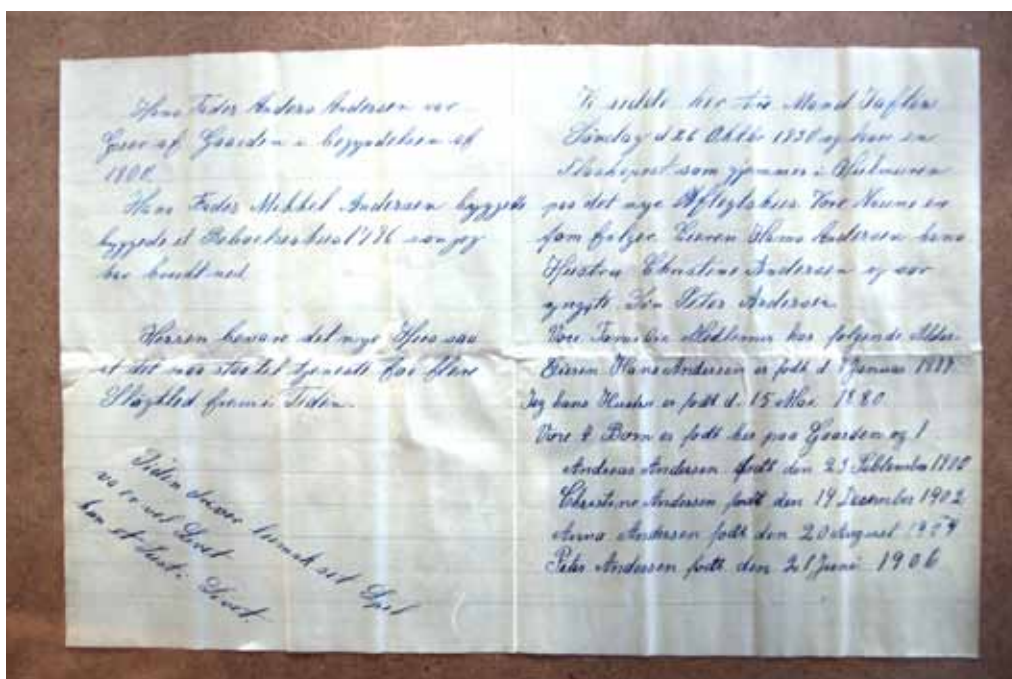 Hans Fader Anders Andersen var
Eier af Gaarden i begyndelsen af
1800.
Hans Fader Mikkel Andersen byggede
byggede et 1786 som jeg
har
Herren bevare det nye Huus saa
at det maa staa til tjeneste for flere
Slægtled frem i Tiden.
Tiden driver lumsk set Spil
va er vel Livet
kun et Pust i Livet.
Vi sidde her Mand Iaften
Søndag d 26 Oktbr 1930 og har en
Flaskepost som gjemmes i Hulmuren
paa det nye Aftegtshus. Vore Navne er
som følger. Eieren Hans Andersen hans
Hustru Christene Andersen og vor
yngste Søn Peter Andersen.
Vore Familie Medlemmer har følgende Alder.
Eieren Hans Andersen er født d. Januar
Jeg hans Hustru er født d. 15 Mai 1880.
Vore 4 Børn er født her paa Gaarden og
Andreas Andersen født den 23 Septembr 1900
Christine Andersen født den 19 Desember 1902
Anna Andersen født den 20 August 1904
Peter Andersen født den 21 Juni 1906